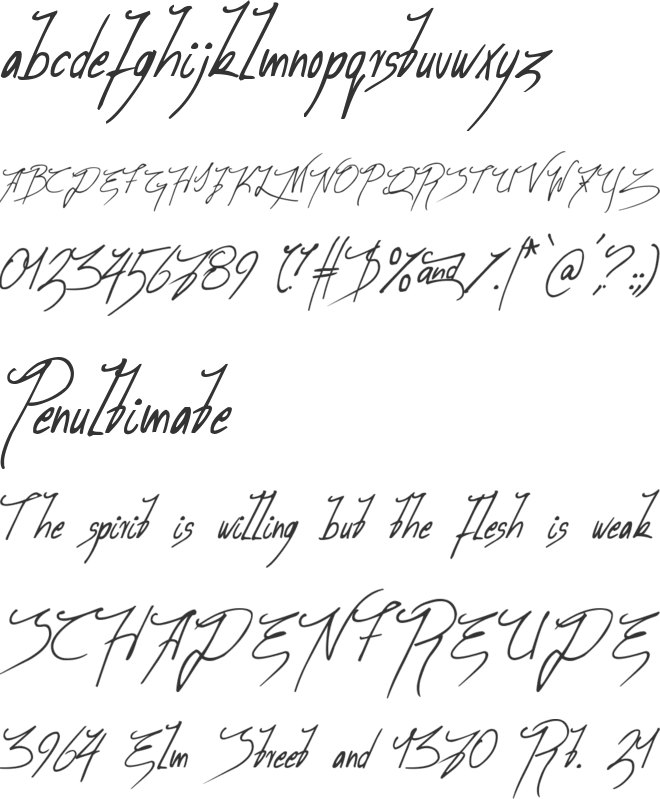 abcdefghijklmnopqrstuvwxyz
ABCDEFGHIJKLMNOPQRSTUVWXYZ
0123456789 (!#$%and/.|*`@´,?:;)
Penultimate
The spirit is willing but the flesh is weak
SCHADENFREUDE
3964 Elm Street and 1370 Rt. 21